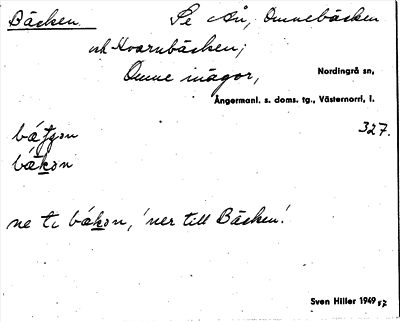 Bäcken. Se Ån, Omnebäcken
och Kvarnbäcken;
Omne inägor, Nordingrå sn,
Ångermanl. s. doms. tg., Västernorrl. l.
327.
bákon
ne ti bákon, 'ner till Bäcken'.
Sven Hiller 1949